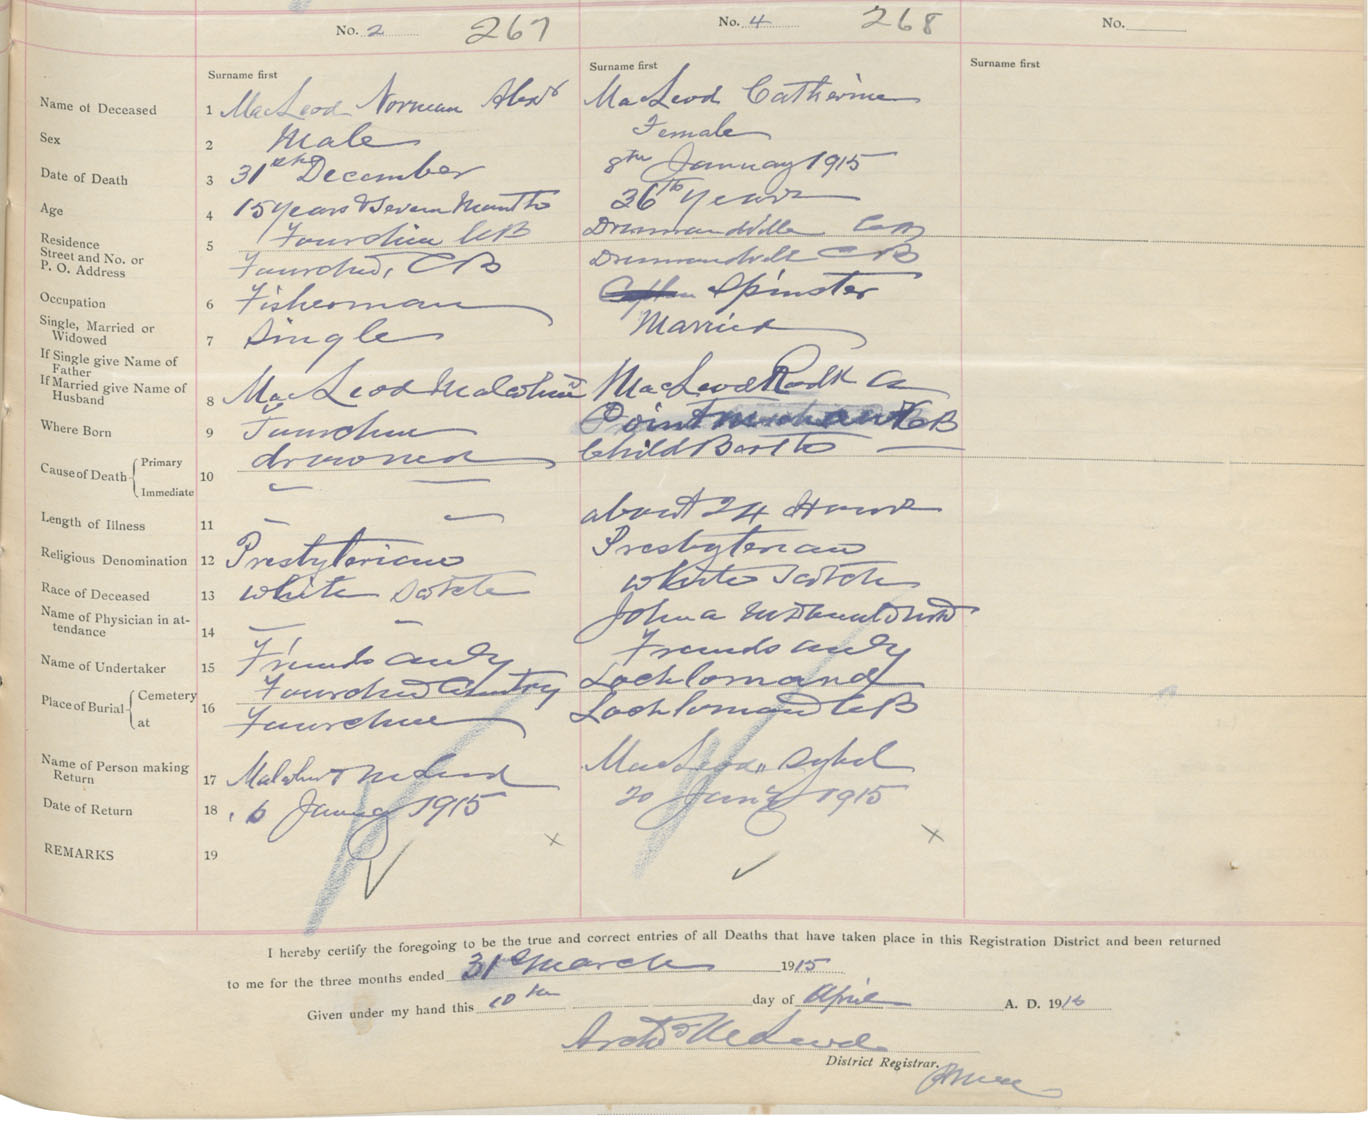 No. 2 267 No. 4 268 No.
Surname first Surname first Surname first
Name of Deceased 1 MacLeod Norman Alexr MacLeod Catherine
Sex 2 Male Female
Date of Death 3 31st December 8th January 1915
Age 4 15 years & Seven Months 36 years
Residence
Street and No. or
P. O. Address
5 Fourchu CB Drummandville
Fourchu, CB Drummandville CB
Occupation 6 Fisherman Spinster
Single, Married or
Widowed
7 Single Married
If Single give Name of
Father
If Married give Name of
Husband
8 MacLeod Malcolm MacLeod Rodk A
Where Born 9 Fourchu Point CB
Cause of Death { Primary drowned Child Barth
10 Immediate
Length of Illness 11 about 24 Hours
Religious Denomination 12 Presbyterian Presbyterian
Race of Deceased 13 White Scotch White Scotch
Name of Physician in at-
tendance
14 John A
Name of Undertaker 15 Friends Friends
Place of Burial { Cemetery Fourchu Lochlomand
16 at Fourchu Lochlomand CB
Name of Person making
Return
17 Malcolm McLeod MacLeod
Date of Return 18 6 January 1915 20 1915
REMARKS 19
I hereby certify the foregoing to be the true and correct entries of all Deaths that have taken place in this Registration District and been returned
to me for the three months ended 31st March 1915
Given under my hand this 10th day of April A. D. 191
Archd McLeod
District Registrar.